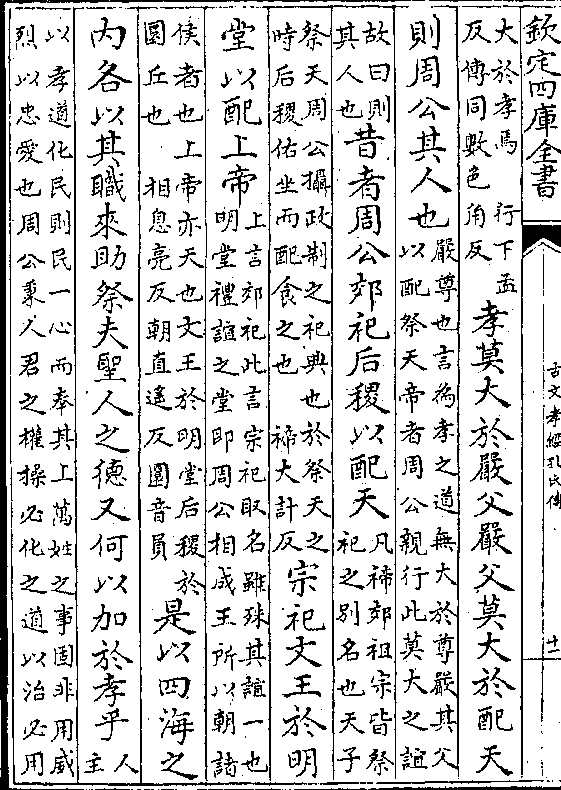 欽定四庫全書
大於孝焉 行下孟
反傳同數色角反
孝莫大於嚴父嚴父莫大於配天
則周公其人也
嚴尊也言為孝之道無大於尊嚴其父
以配祭天帝者周公親行此莫大之誼
故曰則
其人也
昔者周公郊祀后稷以配天
凡禘郊祖宗皆祭
祀之別名也天子
祭天周公攝政制之祀典也於祭天之
時后稷佑坐而配食之也 禘大計反
宗祀文王於明
堂以配上帝
上言郊祀此言宗祀取名雖殊其誼一也
明堂禮誼之堂即周公相成王所以朝諸
侯者也上帝亦天也文王於明堂后稷於
圜丘也 相息亮反朝直遙反圜音員
是以四海之
内各以其職來助祭夫聖人之德又何以加於孝乎
人
主
以孝道化民則民一心而奉其上萬姓之事固非用威
烈以忠愛也周公秉人君之權操必化之道以治必用
古文孝經孔氏傳
十一